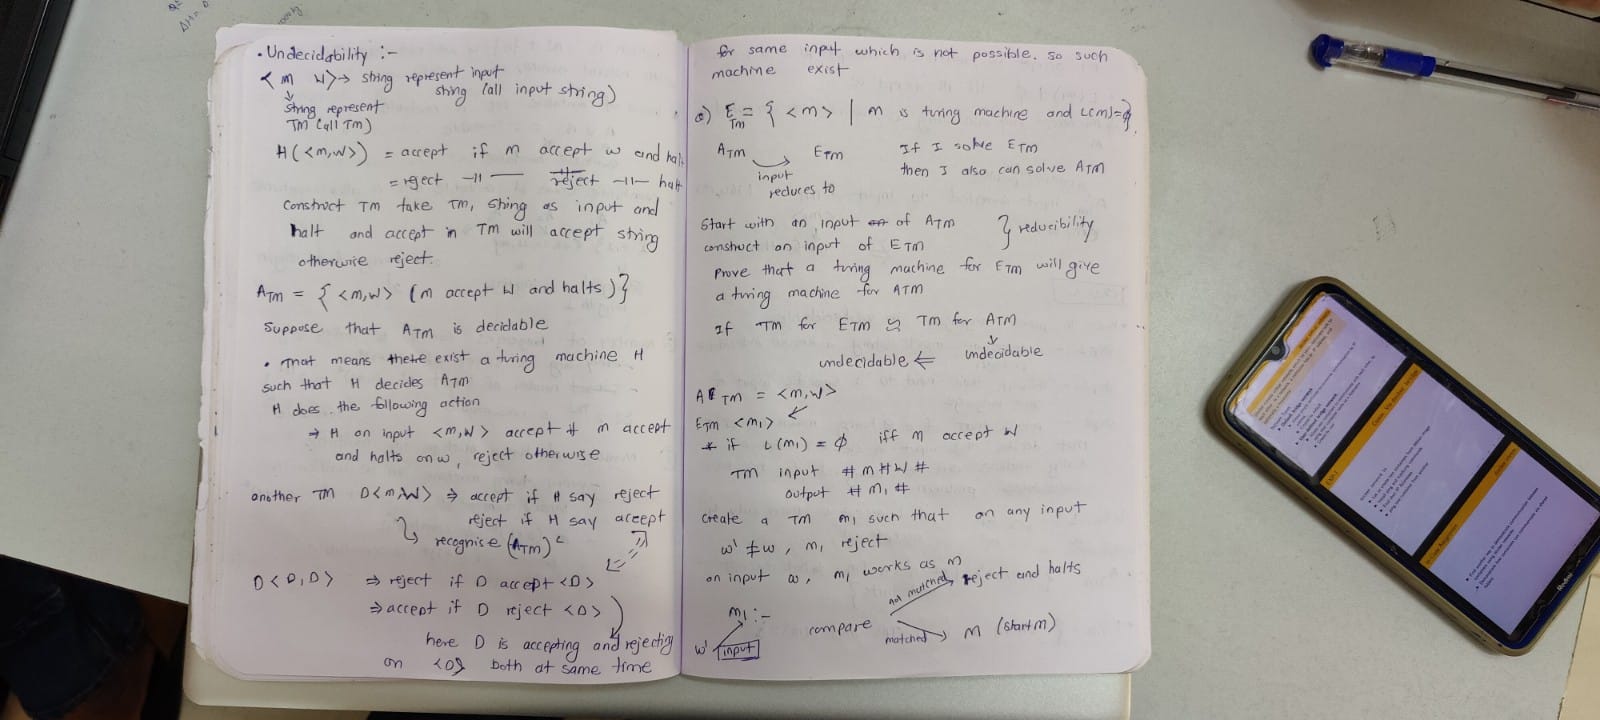 . Undecidability :-
< m  w> → string represent input
string (all input string)
↓
string represent
TM (all TM)
H(<m,w>) = accept if m accept w and halt
= reject —11— reject —11— halt
construct TM take TM, string as input and
halt and accept in TM will accept string
otherwise reject.
ATM = { <m,w> (m accept w and halts)}
suppose that ATM is decidable
• That means there exist a turing machine H
such that H decides ATM
H does the following action
⇒ H on input <m,w> accept if m accept
and halts on w, reject otherwise
another TM D<m,w> ⇒ accept if H say reject
reject if H say accept
↳ recognise (ATM)ᶜ
D<D,D> ⇒ reject if D accept <D>
⇒ accept if D reject <D>
here D is accepting and rejecting
on <D> both at same time
for same input which is not possible. so such
machine exist
ETM = { <m> | m is turing machine and L(m)=ϕ}
ATM → ETM If I solve ETM
input then I also can solve ATM
reduces to
start with an input of ATM } reducibility
construct an input of ETM
Prove that a turing machine for ETM will give
a turing machine for ATM
If TM for ETM TM for ATM
↓
undecidable ⇐ undecidable
TM = <m,w>
ETM <m1>
* if L(m1) = ϕ iff m accept w
TM input # m # w #
output # m1 #
create a TM m1 such that on any input
w' ≠ w, m1 reject
on input w, m1 works as m
not matched reject and halts
m1 :-
compare
matched m (start m)
w' input
Redmi